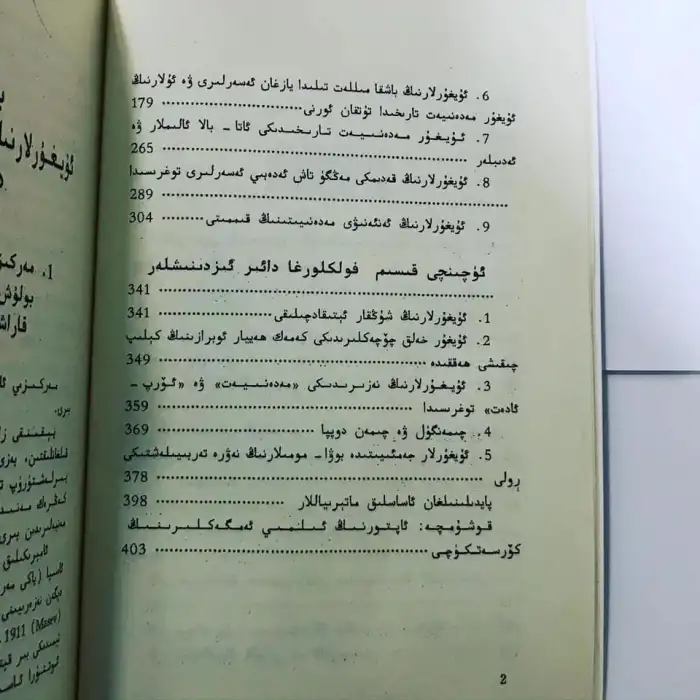 6. ئۇيغۇرلارنىڭ باشقا مىللەت تىلىدا يازغان ئەسەرلىرى ۋە ئۇلارنىڭ
ئۇيغۇر مەدەنىيەت تارىخىدا تۇتقان ئورنى 179
7. ئۇيغۇر مەدەنىيەت تارىخىدىكى ئاتا- بالا ئالىملار ۋە
ئەدىبلەر 265
8. ئۇيغۇرلارنىڭ قەدىمكى مەڭگۈ تاش ئەدەبىي ئەسەرلىرى توغرىسىدا
289
9. ئۇيغۇرلارنىڭ ئەنئەنىۋى مەدەنىيىتىنىڭ قىممىتى 304
ئۈچىنچى قىسىم فولكلورغا دائىر ئىزدىنىشلەر
341
1. ئۇيغۇرلارنىڭ شۇڭقار ئېتىقادچىلىقى 341
2. ئۇيغۇر خەلق چۆچەكلىرىدىكى كەمەك ھەييار ئوبرازىنىڭ كېلىپ
چىقىشى ھەققىدە 349
3. ئۇيغۇرلارنىڭ نەزىرىدىكى «مەدەنىيەت» ۋە «ئۆرپ -
ئادەت» توغرىسىدا 359
4. چىمەنگۈل ۋە چىمەن دوپپا 369
5. ئۇيغۇرلار جەمئىيىتىدە بوۋا- مومىلارنىڭ نەۋرە تەربىيىلەشتىكى
رولى 378
پايدىلىنىلغان ئاساسلىق ماتېرىياللار 398
قوشۇمچە: ئاپتورنىڭ ئىلمىي ئەمگەكلىرىنىڭ
كۆرسەتكۈچى 403
2
ئۇيغۇرلارنىڭ
1. مەركىزىي
بولۇش
قاراش
مەركىزىي
1911 (Masey)